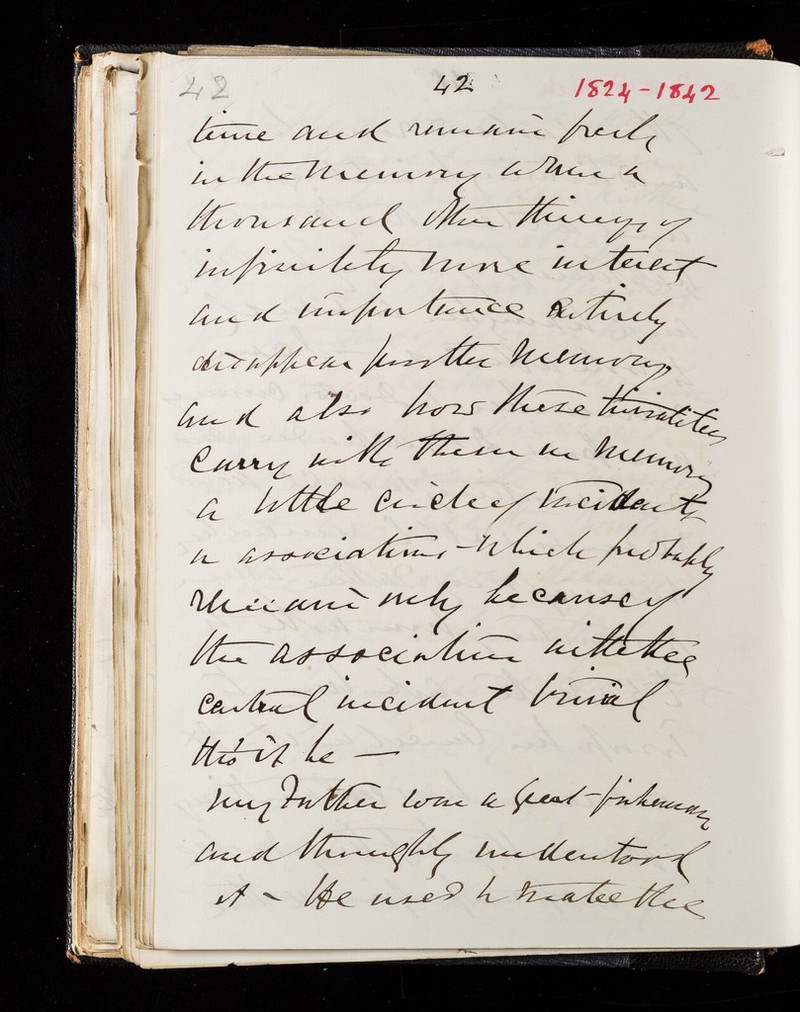 42 42 1824-1842
time and remain fresh
in the memory when a
thousand other things of
infinitely more interest
and importance entirely
disappear from the memory
and also how these trivialities
carry with them in memory
a little circle of incidents
or associations - which probably
remain only because of
the association with the
central incident trivial
tho' it be —
my Father was a great fisherman
and thoroughly understood
it - He used to make the